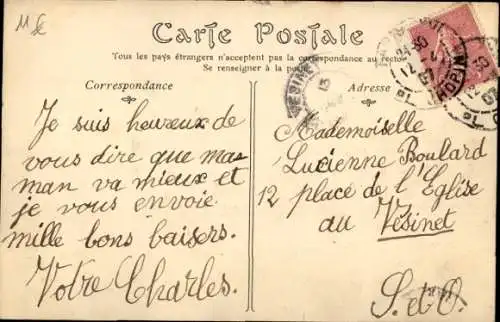 Carte Postale
Tous les pays étrangers n'acceptent pas la correspondance au recto
Se renseigner à la
Correspondance
Adresse
Je suis heureux de
vous dire que ma
man va mieux et
je vous envoie
mille bons baisers.
Votre Charles.
VESINET
Mademoiselle
Lucienne Boulard
12 place de l'Eglise
au Vésinet
S. et O.